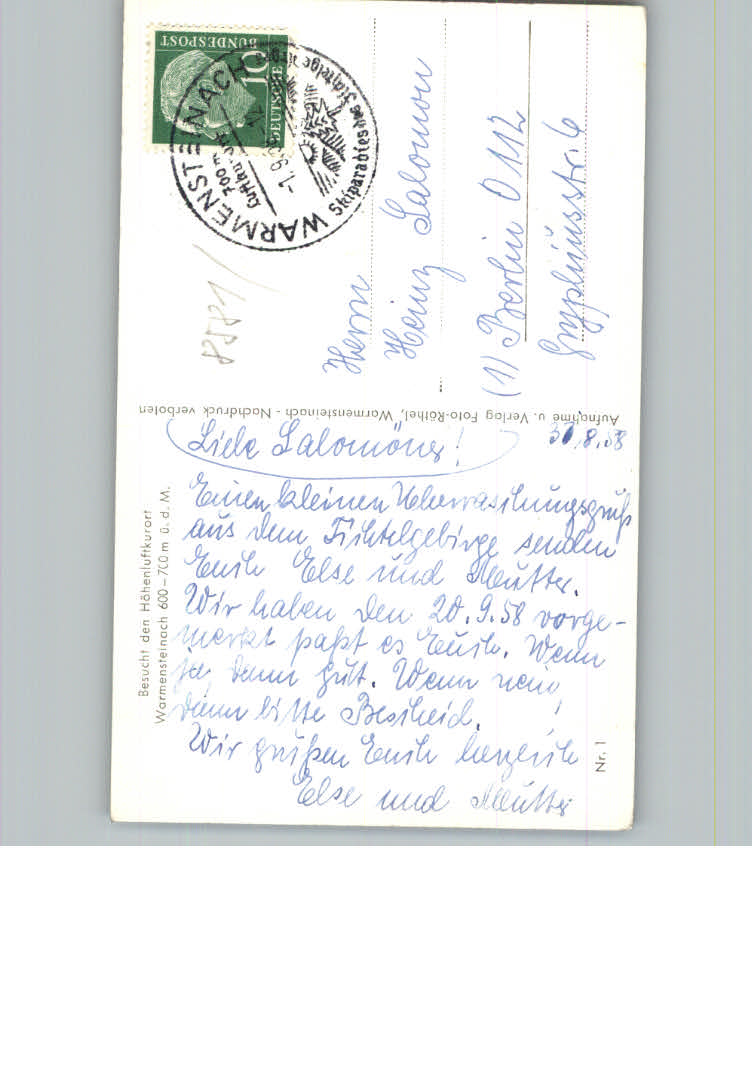 BUNDESPOST
10
DEUTSCHE
WARMENSTEINACH
700 m
Luftkurort
-1. 9.58
Skiparadies des Fichtelgebirges
8581/
Herrn
Heinz Salomon
(1) Berlin O 112
Gryphiusstr. 6
Aufnahme u. Verlag Foto-Röthel, Warmensteinach - Nachdruck verboten
31.8.58
Liebe Salomöner!
Einen kleinen Überraschungsgruß
aus dem Fichtelgebirge senden
Euch Else und Mutter.
Wir haben den 20.9.58 vorge-
merkt paßt es Euch. Wenn
ja, dann gut. Wenn nein,
dann bitte Bescheid.
Wir grüßen Euch herzlich
Else und Mutter
Besucht den Höhenluftkurort
Warmensteinach 600–700 m ü. d. M.
Nr. 1